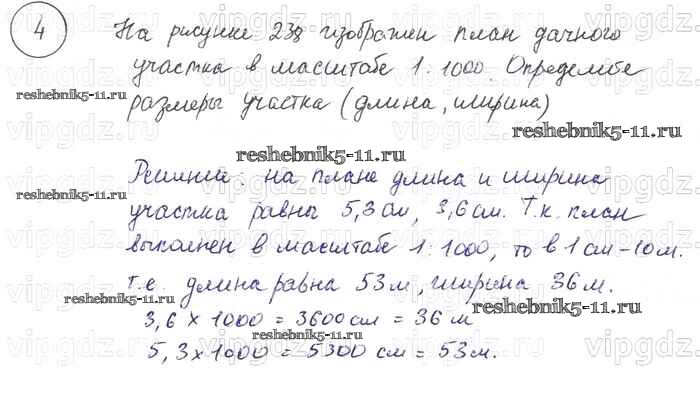 4
На рисунке 238 изображен план дачного
участка в масштабе 1:1000. Определите
размеры участка (длина, ширина)
Решение: на плане длина и ширина
участка равны 5,3 см, 3,6 см. Т.к. план
выполнен в масштабе 1:1000, то в 1 см – 10 м.
т.е. длина равна 53 м, ширина 36 м.
3,6 × 1000 = 3600 см = 36 м
5,3 × 1000 = 5300 см = 53 м.
reshebnik5-11.ru
reshebnik5-11.ru
reshebnik5-11.ru
reshebnik5-11.ru
reshebnik5-11.ru
reshebnik5-11.ru
reshebnik5-11.ru
vipgdz.ru